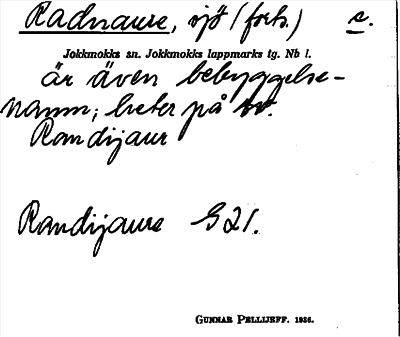 Radnaure, sjö (forts.) c.
Jokkmokks sn. Jokkmokks lappmarks tg. Nb l.
är även bebyggelse-
namn; heter på sv.
Randijaur
Randijaure G 21.
GUNNAR PELLIJEFF. 1936.